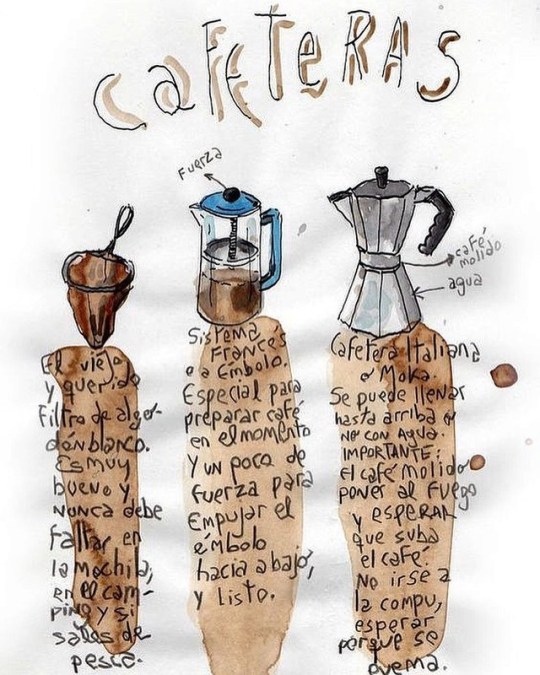 CAFETERAS
Fuerza
café
molido
agua
El viejo
y querido
Filtro de algo-
dón blanco.
Es muy
bueno y
NUNCA debe
faltar en
la mochila,
en el cam-
ping y si
sales de
pesca.
Sistema
FRANCES
o a Embolo.
Especial para
preparar café
en el momento
Y UN poco de
fuerza para
Empujar el
émbolo
hacia abajo,
y listo.
Cafetera Italiana
o Moka.
Se puede llenar
hasta arriba
con Agua.
IMPORTANTE:
El café molido
poner al fuego
y esperar
que suba
el café.
No irse a
la compu,
esperar
porque se
quema.